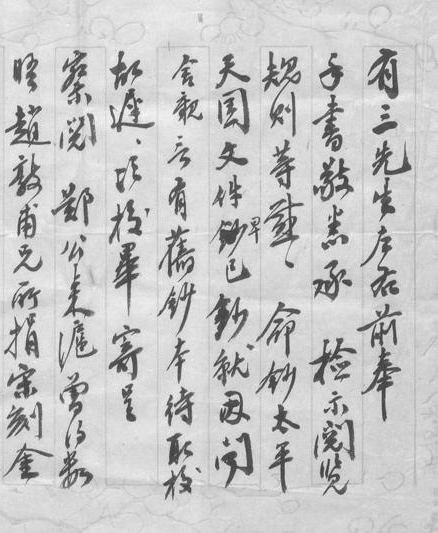 有三先生左右前奉
手書敬悉承 檢示閱覽
規則等 命鈔太平
天國文件早已鈔就因聞
舍親言有舊鈔本待取校
故遲、頃校畢 寄呈
察閱 鄭公來滬曾得數
晤趙敦甫兄所捐宋刻金